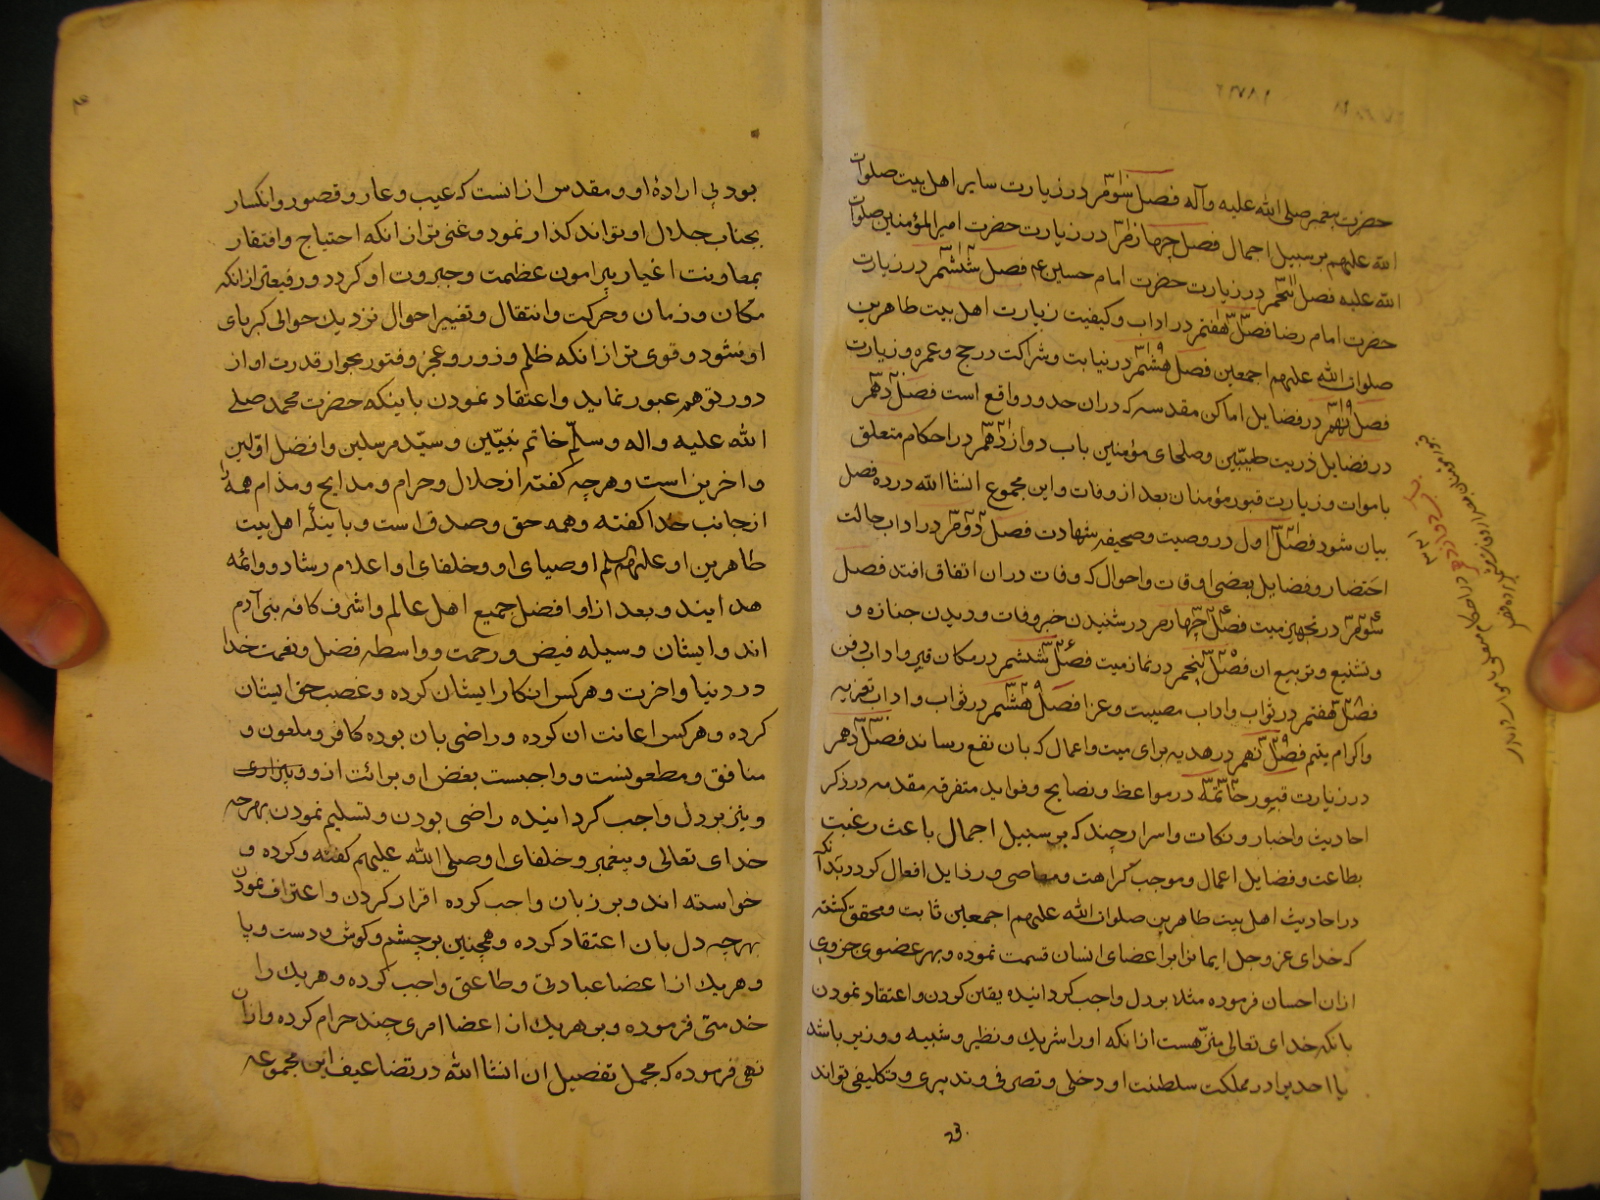 حضرت پیغمبر صلی الله علیه وآله فصل سوم در زیارت سایر اهل بیت صلوات
الله علیهم بر سبیل اجمال فصل چهارم در زیارت حضرت امیرالمؤمنین صلوات
الله علیه فصل پنجم در زیارت حضرت امام حسین ع فصل ششم در زیارت
حضرت امام رضا فصل هفتم در اداب و کیفیت زیارت اهل بیت طاهرین
صلوات الله علیهم اجمعین فصل هشتم در نیابت و شراکت در حج و عمره و زیارت
فصل نهم در فضایل اماکن مقدسه که دران حدود واقع است فصل دهم
در فضایل ذریت طیبین و صلحای مؤمنین باب دوازدهم در احکام متعلق
باموات و زیارت قبور مؤمنان بعد از وفات و این مجموع انشا الله در ده فصل
بیان شود فصل اول در وصیت و صحیفه شهادت فصل دوم در اداب حالت
احتضار و فضایل بعضی اوقات و احوال که وفات دران اتفاق افتد فصل
سوم در تجهیز میت فصل چهارم در شنیدن خبر وفات و دیدن جنازه و
و تشیع و تربیع ان فصل پنجم در نماز میت فصل ششم در مکان قبر و اداب دفن
فصل هفتم در ثواب و اداب مصیبت و عزا فصل هشتم در ثواب و اداب تعزیه
و اکرام یتیم فصل نهم در هدیه برای میت و اعمال که بان نفع رساند فصل دهم
در زیارت قبور خاتمه در مواعظ و نصایح و فواید متفرقه مقدمه در ذکر
احادیث و اخبار و نکات و اسرار چند که بر سبیل اجمال باعث رغبت
بطاعت و فضایل اعمال و موجب کراهت و معاصی و رذایل افعال کردد بدآنکه
در احادیث اهل بیت طاهرین صلوات الله علیهم اجمعین ثابت و محقق کشته
که خدای عز و جل ایمانرا بر اعضای انسان قسمت نموده و بهر عضوی جزوی
ازان احسان فرموده مثلا بر دل واجب کردانیده یقین کردن و اعتقاد نمودن
بانکه خدای تعالی منزّهست ازانکه او را شریک و نظیر و شبیه و وزیر باشد
یا احدیرا در مملکت سلطنت او دخلی و تصرفی و تدبیری و تکلیفی تواند
23
بود بی ارادۀ او و مقدس ازانست که عیب و عار و قصور و انکسار
بجناب جلال او تواند کذار نمود و غنی تر از انکه احتیاج و افتقار
بمعاونت اغیار پیرامون عظمت و جبروت او کردد و رفیعتر ازانکه
مکان و زمان و حرکت و انتقال و تغییر احوال نزدیک حوالی کبریای
او شود و قوی تر از انکه ظلم و زور و عجز و فتور بجوار قدرت او از
دور توهم عبور نماید و اعتقاد نمودن باینکه حضرت محمد صلی
الله علیه واله وسلّم خاتم نبیّین و سیّد مرسلین و افضل اوّلین
و اخرین است و هرچه کفته از حلال و حرام و مدایح و مذام همه را
از جانب خدا کفته وهمه حق و صدق است و باینکه اهل بیت
طاهرین او علیهم السلم اوصیای او و خلفای او اعلام رشاد و وائمه
هدایند و بعد از او افضل جمیع اهل عالم و اشرف کافه بنی آدم
اند و ایشان وسیله فیض و رحمت و واسطه فضل و نعمت خدا
در دنیا و اخرت و هرکس انکار ایشان کرده و غصب حق ایشان
کرده و هرکس اعانت ان کرده و راضی بان بوده کافر و ملعون و
منافق و مطعونست و واجبست بغض او و برائت ازو و بیزاری
و نیز بر دل واجب کردانیده راضی بودن و تسلیم نمودن بهرچه
خدای تعالی و پیغمبر و خلفای او صلی الله علیهم کفته و کرده و
خواسته اند و بر زبان واجب کرده اقرار کردن و اعتراف نمودن
بهرچه دل بان اعتقاد کرده و همچنین بر چشم و کوش و دست و پا
و هریک از اعضا عبادتی و طاعتی واجب کرده و هریک را
خدمتی فرموده و بر هریک از اعضا امری چند حرام کرده و ازان
نهی فرموده که مجمل تفصیل ان انشا الله در تضاعیف این مجموعه